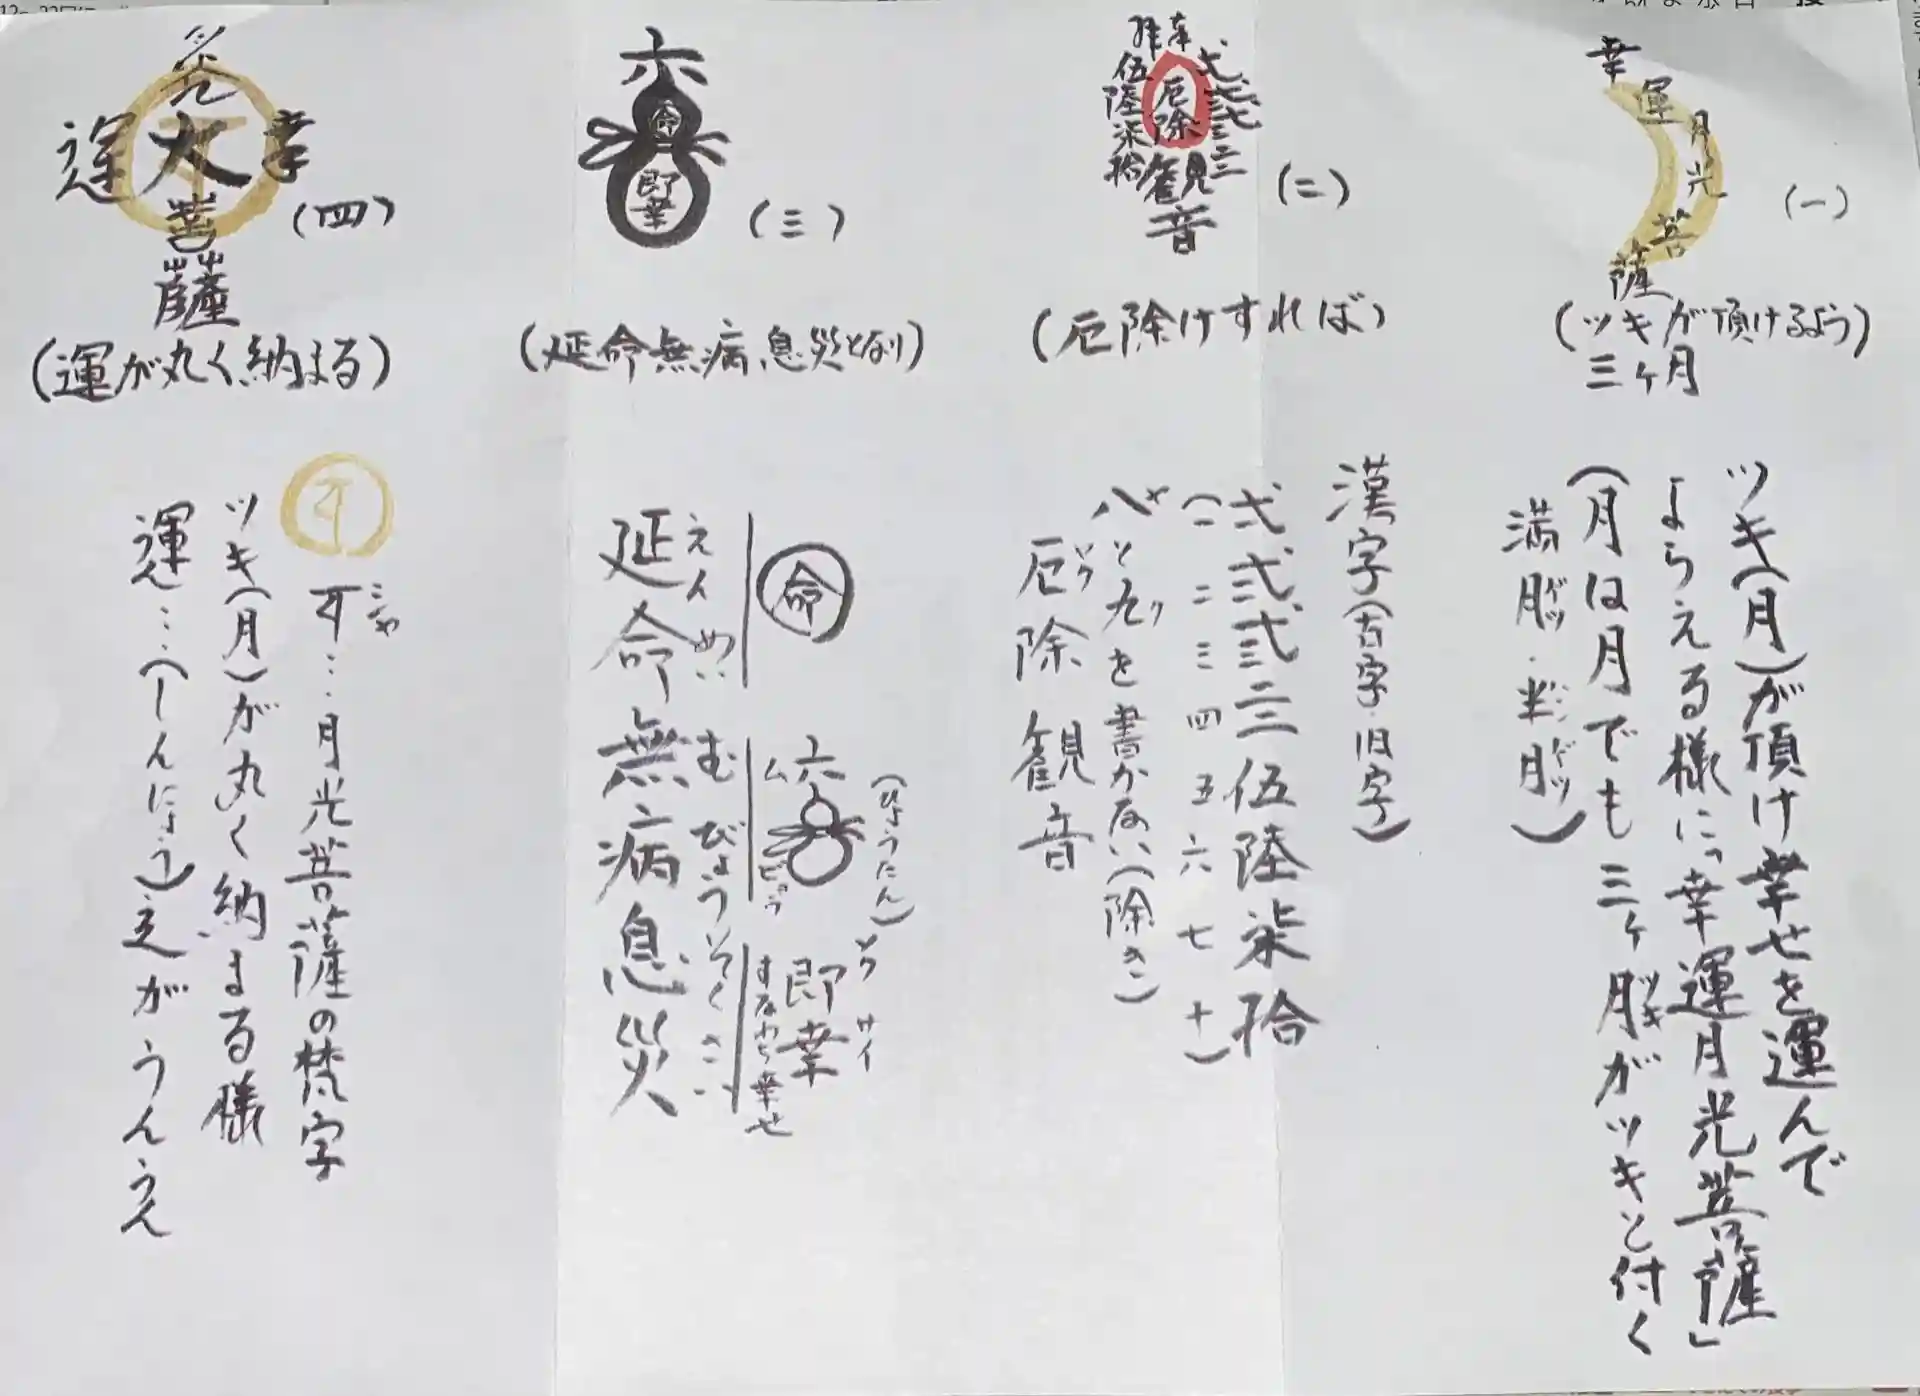 幸運月光菩薩
(一)
(ツキが頂けるよう)
三ヶ月
ツキ(月)が頂け幸せを運んで
よらえる様に「幸運月光菩薩」
(月は月でも三ヶ月ツキがツキと付く
満月・半月)
弐弐弐三
伍陸柒拾
厄除
観音
(二)
(厄除けすれば)
漢字(古字・旧字)
弌弐弐三伍陸柒拾
(一二三四五六七十)
八ヤと九クを書かない(除さ)
厄ヤク除観音
六
命
即幸
(三)
(延命無病息災となり)
(ひょうたん)
命
六ム
ビョウ
即ソク幸サイ
すなわち幸せ
えんめい むびょうそくさい
延命無病息災
幸
運
大
菩
薩
(四)
(運が丸く納まる)
シャ…月光菩薩の梵字
ツキ(月)が丸く納まる様
運…(しんにょう)辶がうんうん